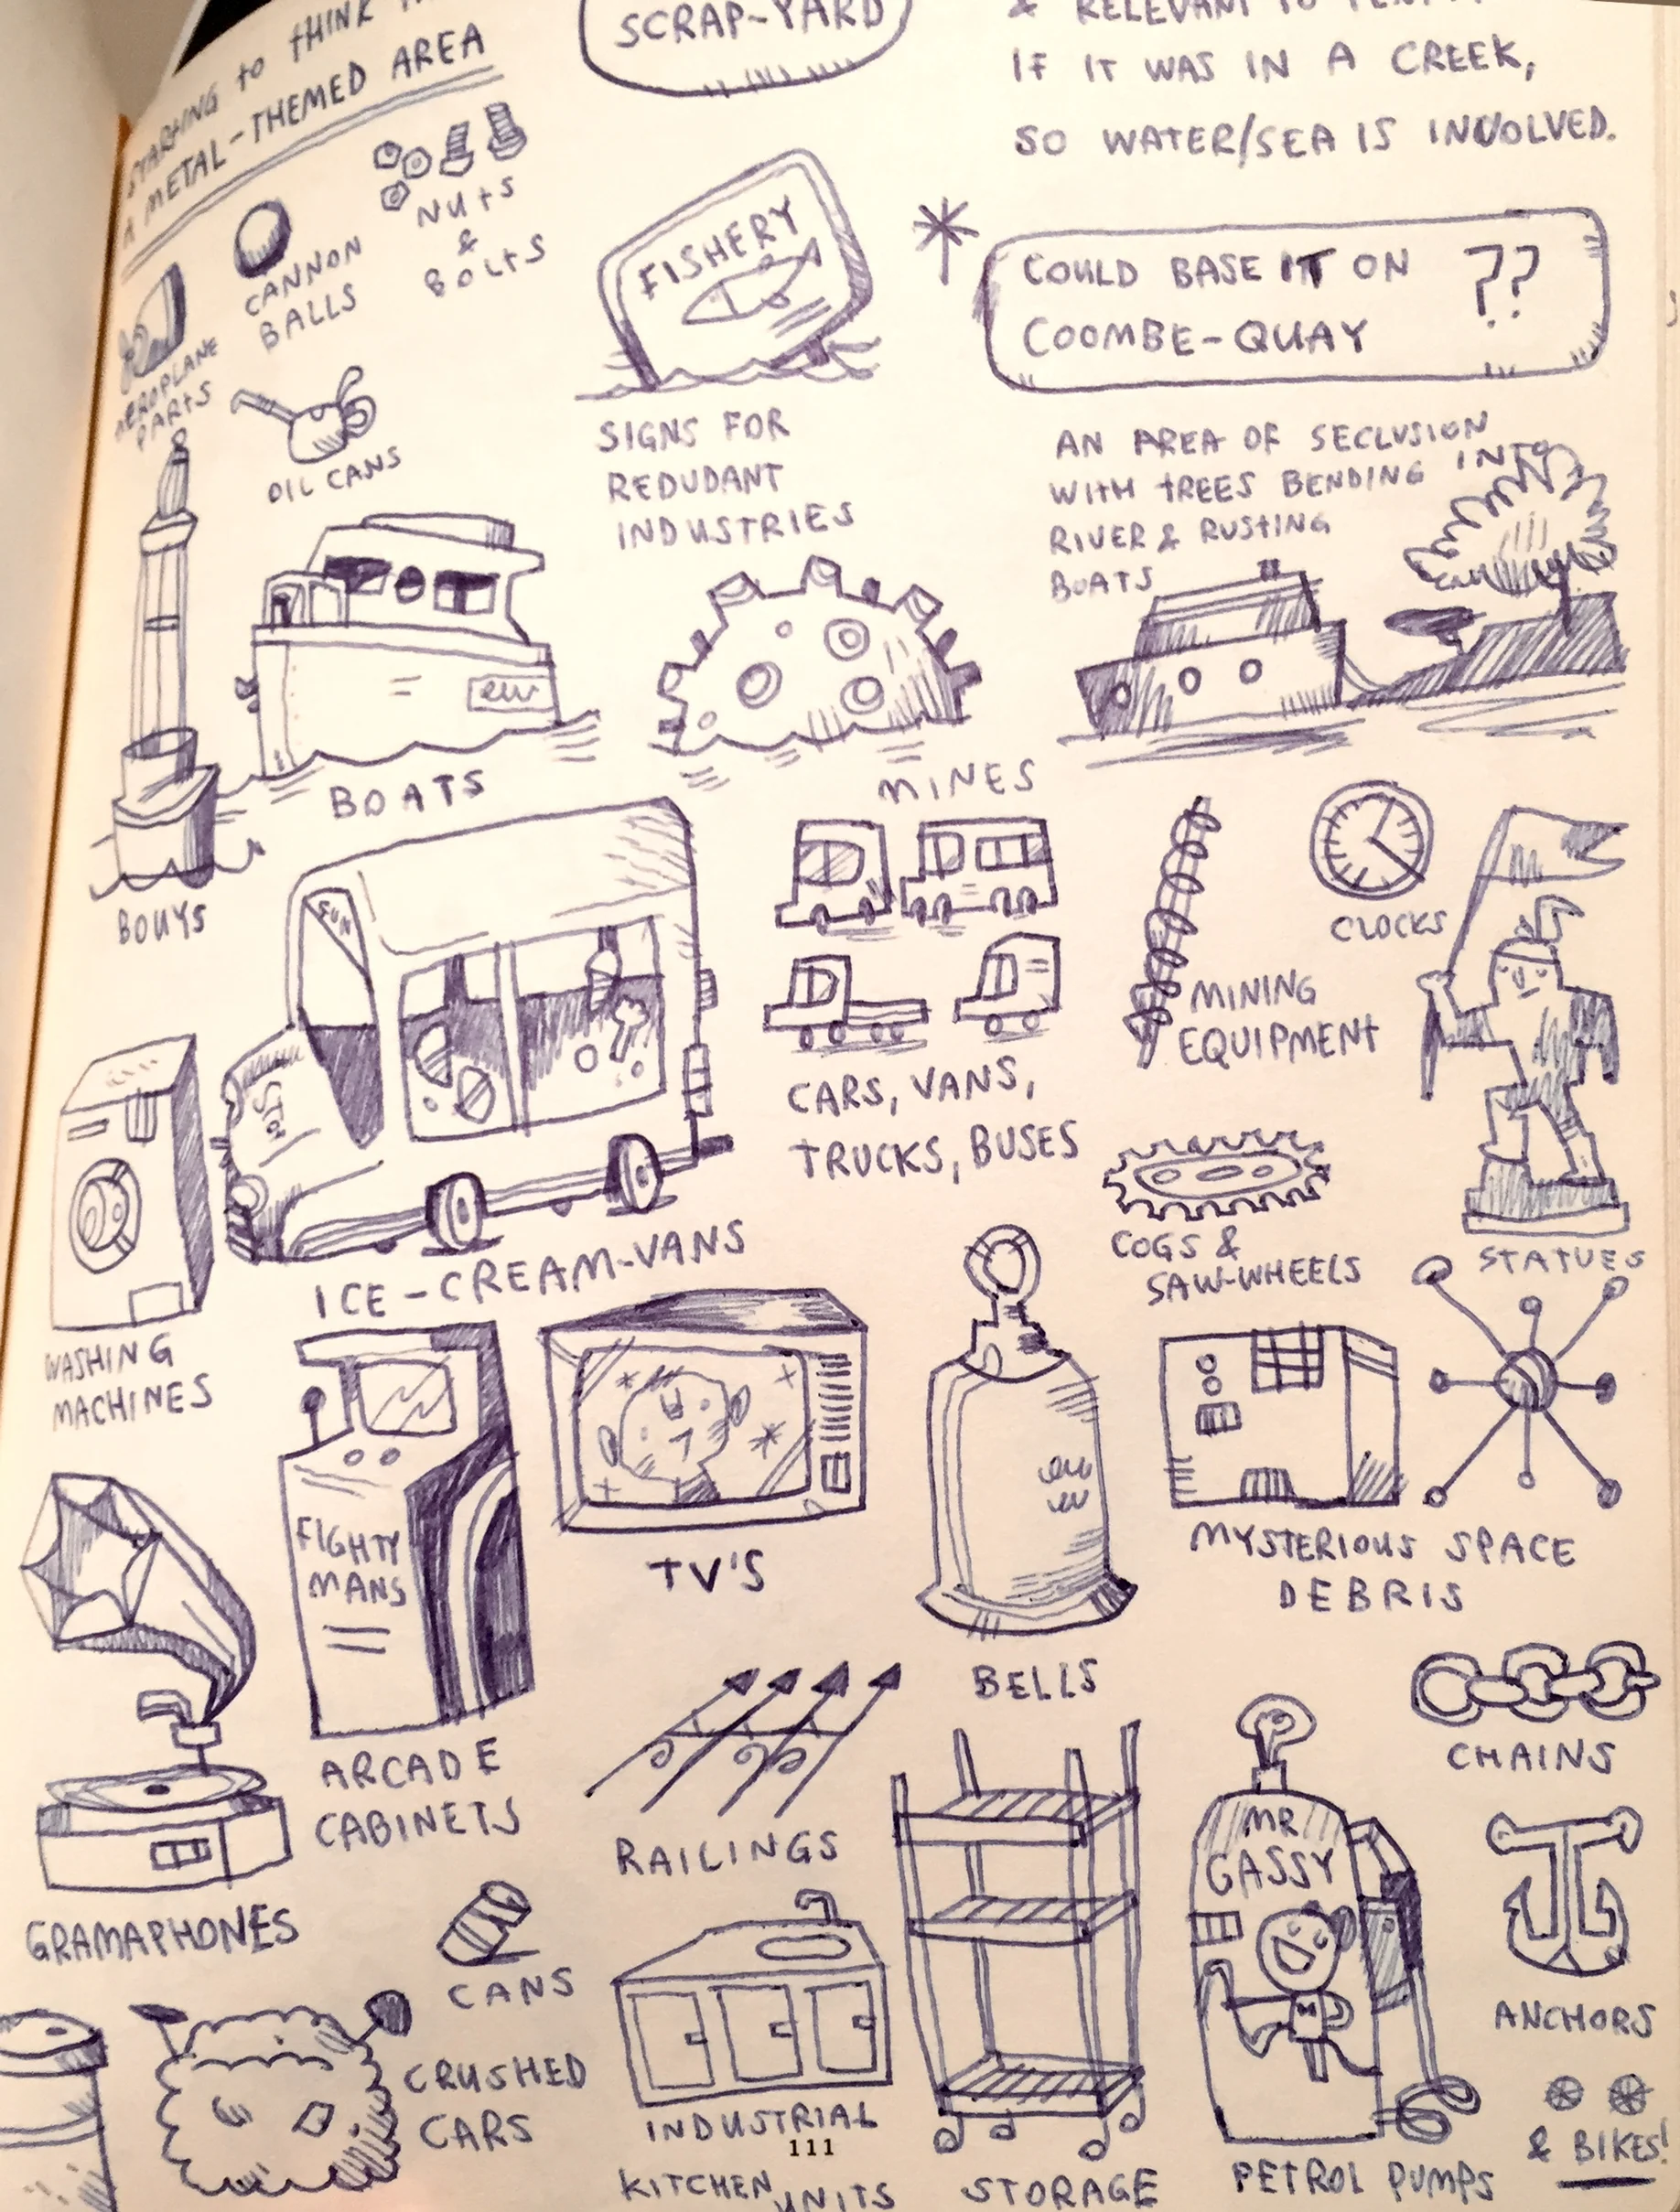 STARTING to THINK
A METAL-THEMED AREA
SCRAP-YARD
& RELEVANT TO
IF IT WAS IN A CREEK,
SO WATER/SEA IS INVOLVED.
NUTS
&
BOLTS
CANNON
BALLS
AEROPLANE
PARTS
OIL CANS
FISHERY
SIGNS FOR
REDUDANT
INDUSTRIES
COULD BASE IT ON
COOMBE-QUAY
??
AN AREA OF SECLUSION
WITH TREES BENDING INTO
RIVER & RUSTING
BOATS
BOUYS
BOATS
MINES
CLOCKS
MINING
EQUIPMENT
CARS, VANS,
TRUCKS, BUSES
STATUES
FUN
STOP
ICE-CREAM-VANS
COGS &
SAW-WHEELS
WASHING
MACHINES
FIGHTY
MANS
TV'S
MYSTERIOUS SPACE
DEBRIS
BELLS
CHAINS
ARCADE
CABINETS
RAILINGS
MR
GASSY
M
GRAMAPHONES
CANS
ANCHORS
CRUSHED
CARS
INDUSTRIAL
111
KITCHEN UNITS
STORAGE
PETROL PUMPS
& BIKES!